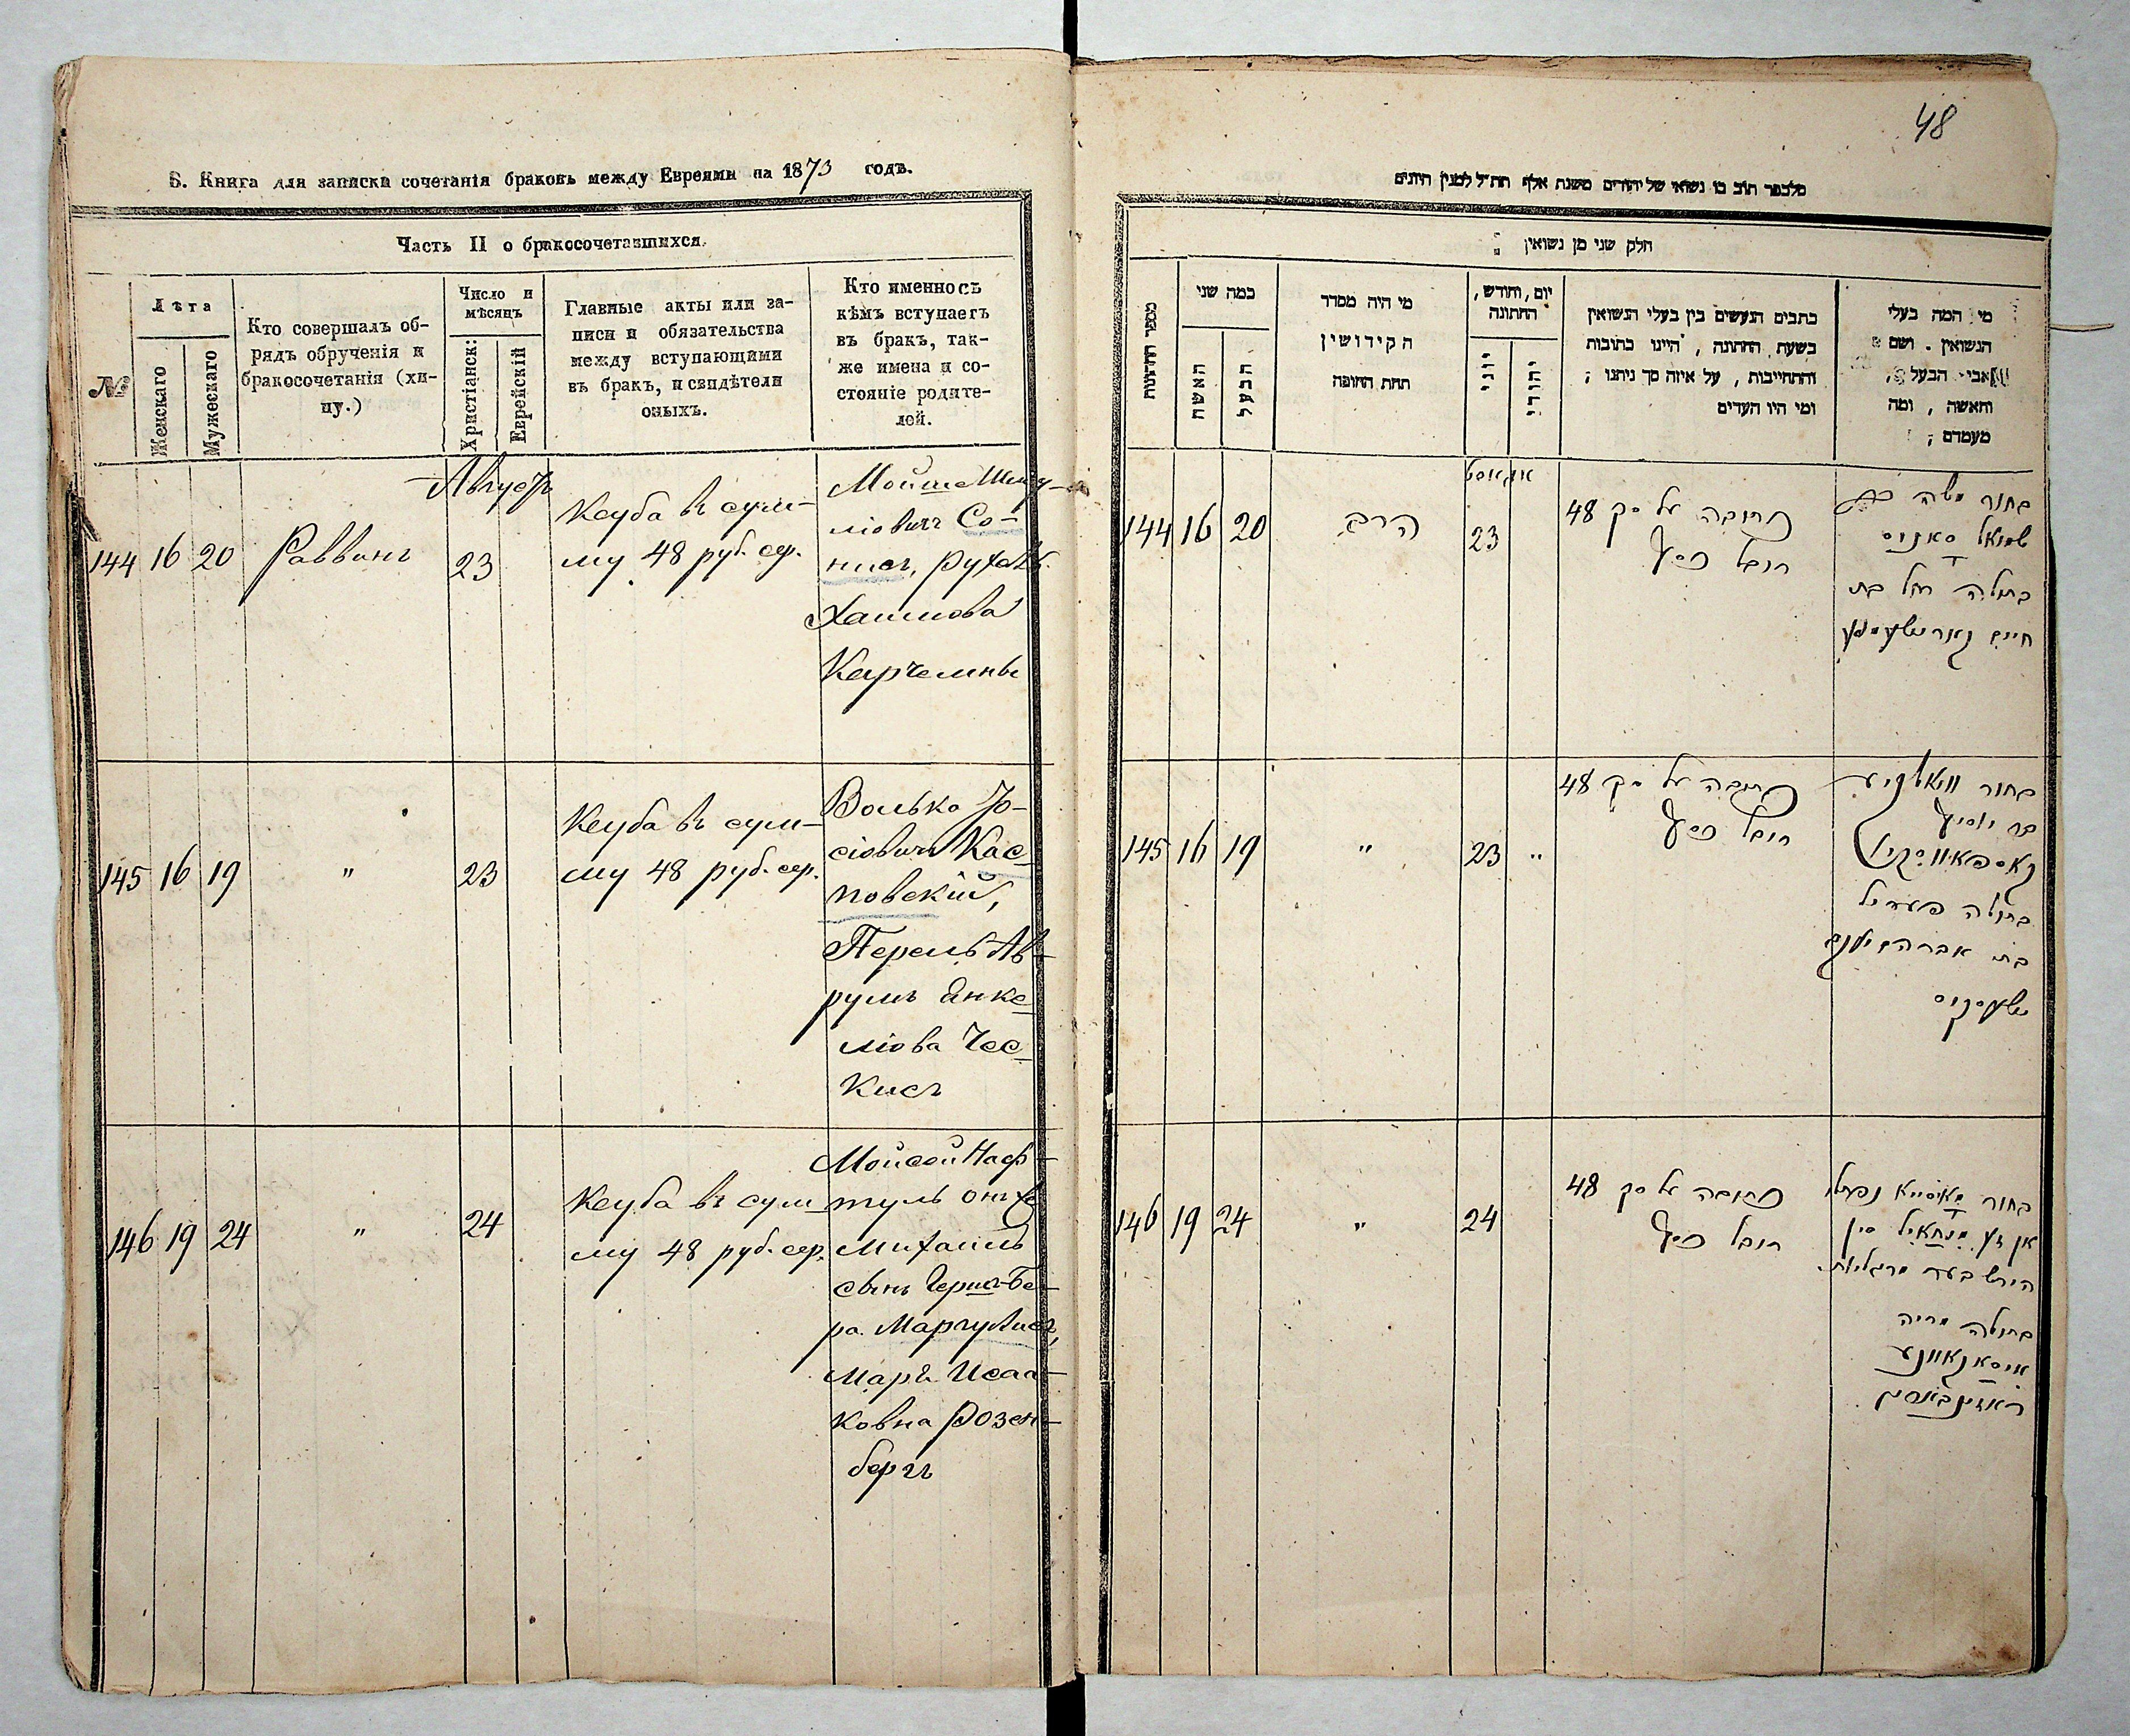 В. Книга для записки сочетанія браковъ между Евреями на 1873 годъ.
Часть II о бракосочетавшихся.
№
Лѣта
Женскаго
Мужескаго
Кто совершалъ об-
рядъ обрученія и
бракосочетанія (хи-
пу.)
Число и
мѣсяцъ
Христіанск:
Еврейскій
Главные акты или за-
писи и обязательства
между вступающими
въ бракъ, и свидѣтели
оныхъ.
Кто именно съ
кѣмъ вступаетъ
въ бракъ, так-
же имена и со-
стояніе родите-
лей.
Августъ
144 16 20 Раввинъ 23
Кеуба въ сум-
му 48 руб. сер.
Мойше Шму-
ліовичъ Со-
нисъ, Рухаль
Хаимова
Карчемны
145 16 19 " 23
Кеуба въ сум-
му 48 руб. сер.
Волько Іо-
сіовичъ Кас-
повскій,
Перель Ав-
румъ Янке-
ліова Чес-
кисъ
146 19 24 " 24
Кеуба въ сум-
му 48 руб. сер.
Мойсей Наф-
туль онъ же
Михаилъ
сынъ Герша-Бе-
ра Маргулисъ,
Марія Исаа-
ковна Розен-
бергъ
48
חלק שני מן נשואין
מספר החתונות
כמה שני
האשה
הבעל
מי היה מסדר
הקידושין
תחת החופה
יום, וחודש,
החתונה
יוני
יהודי
כתבים הנעשים בין בעלי הנשואין
בשעת החתונה, היינו כתובות
והתחייבות, על איזה סך ניתנו;
ומי היו העדים
מי המה בעלי
הנשואין. ושם
אבי הבעל,
והאשה, ומה
מעמדם;
אווגוסט
144 16 20 הרב 23
כתובה על סך 48
רובל כסף
בחור משה בר
שמואל סאניס
בתולה רחל בת
חיים
145 16 19 " 23 "
כתובה על סך 48
רובל כסף
בחור וואלקע
בר יוסף
קאספאווסקי
בתולה פעריל
בת אברהם יענקל
146 19 24 " 24
כתובה על סך 48
רובל כסף
בחור מאיסיי נפתלי
הירש בער מרגליות
בתולה מריה
איסאקאוונע
ראזינבערג